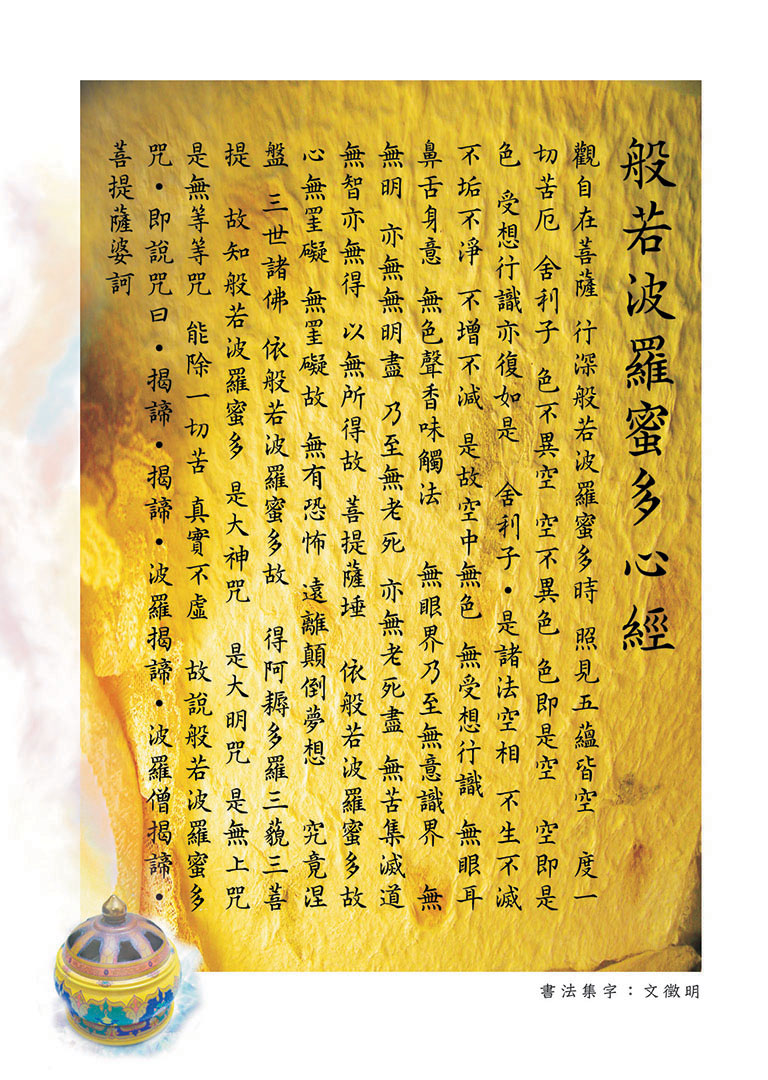 般若波羅蜜多心經
觀自在菩薩 行深般若波羅蜜多時 照見五蘊皆空 度一
切苦厄 舍利子 色不異空 空不異色 色即是空 空即是
色 受想行識亦復如是 舍利子・是諸法空相 不生不滅
不垢不淨 不增不減 是故空中無色 無受想行識 無眼耳
鼻舌身意 無色聲香味觸法 無眼界乃至無意識界 無
無明 亦無無明盡 乃至無老死 亦無老死盡 無苦集滅道
無智亦無得 以無所得故 菩提薩埵 依般若波羅蜜多故
心無罣礙 無罣礙故 無有恐怖 遠離顛倒夢想 究竟涅
盤 三世諸佛 依般若波羅蜜多故 得阿耨多羅三藐三菩
提 故知般若波羅蜜多 是大神咒 是大明咒 是無上咒
是無等等咒 能除一切苦 真實不虛 故說般若波羅蜜多
咒・即說咒曰・揭諦・揭諦・波羅揭諦・波羅僧揭諦・
菩提薩婆訶
書法集字：文徵明